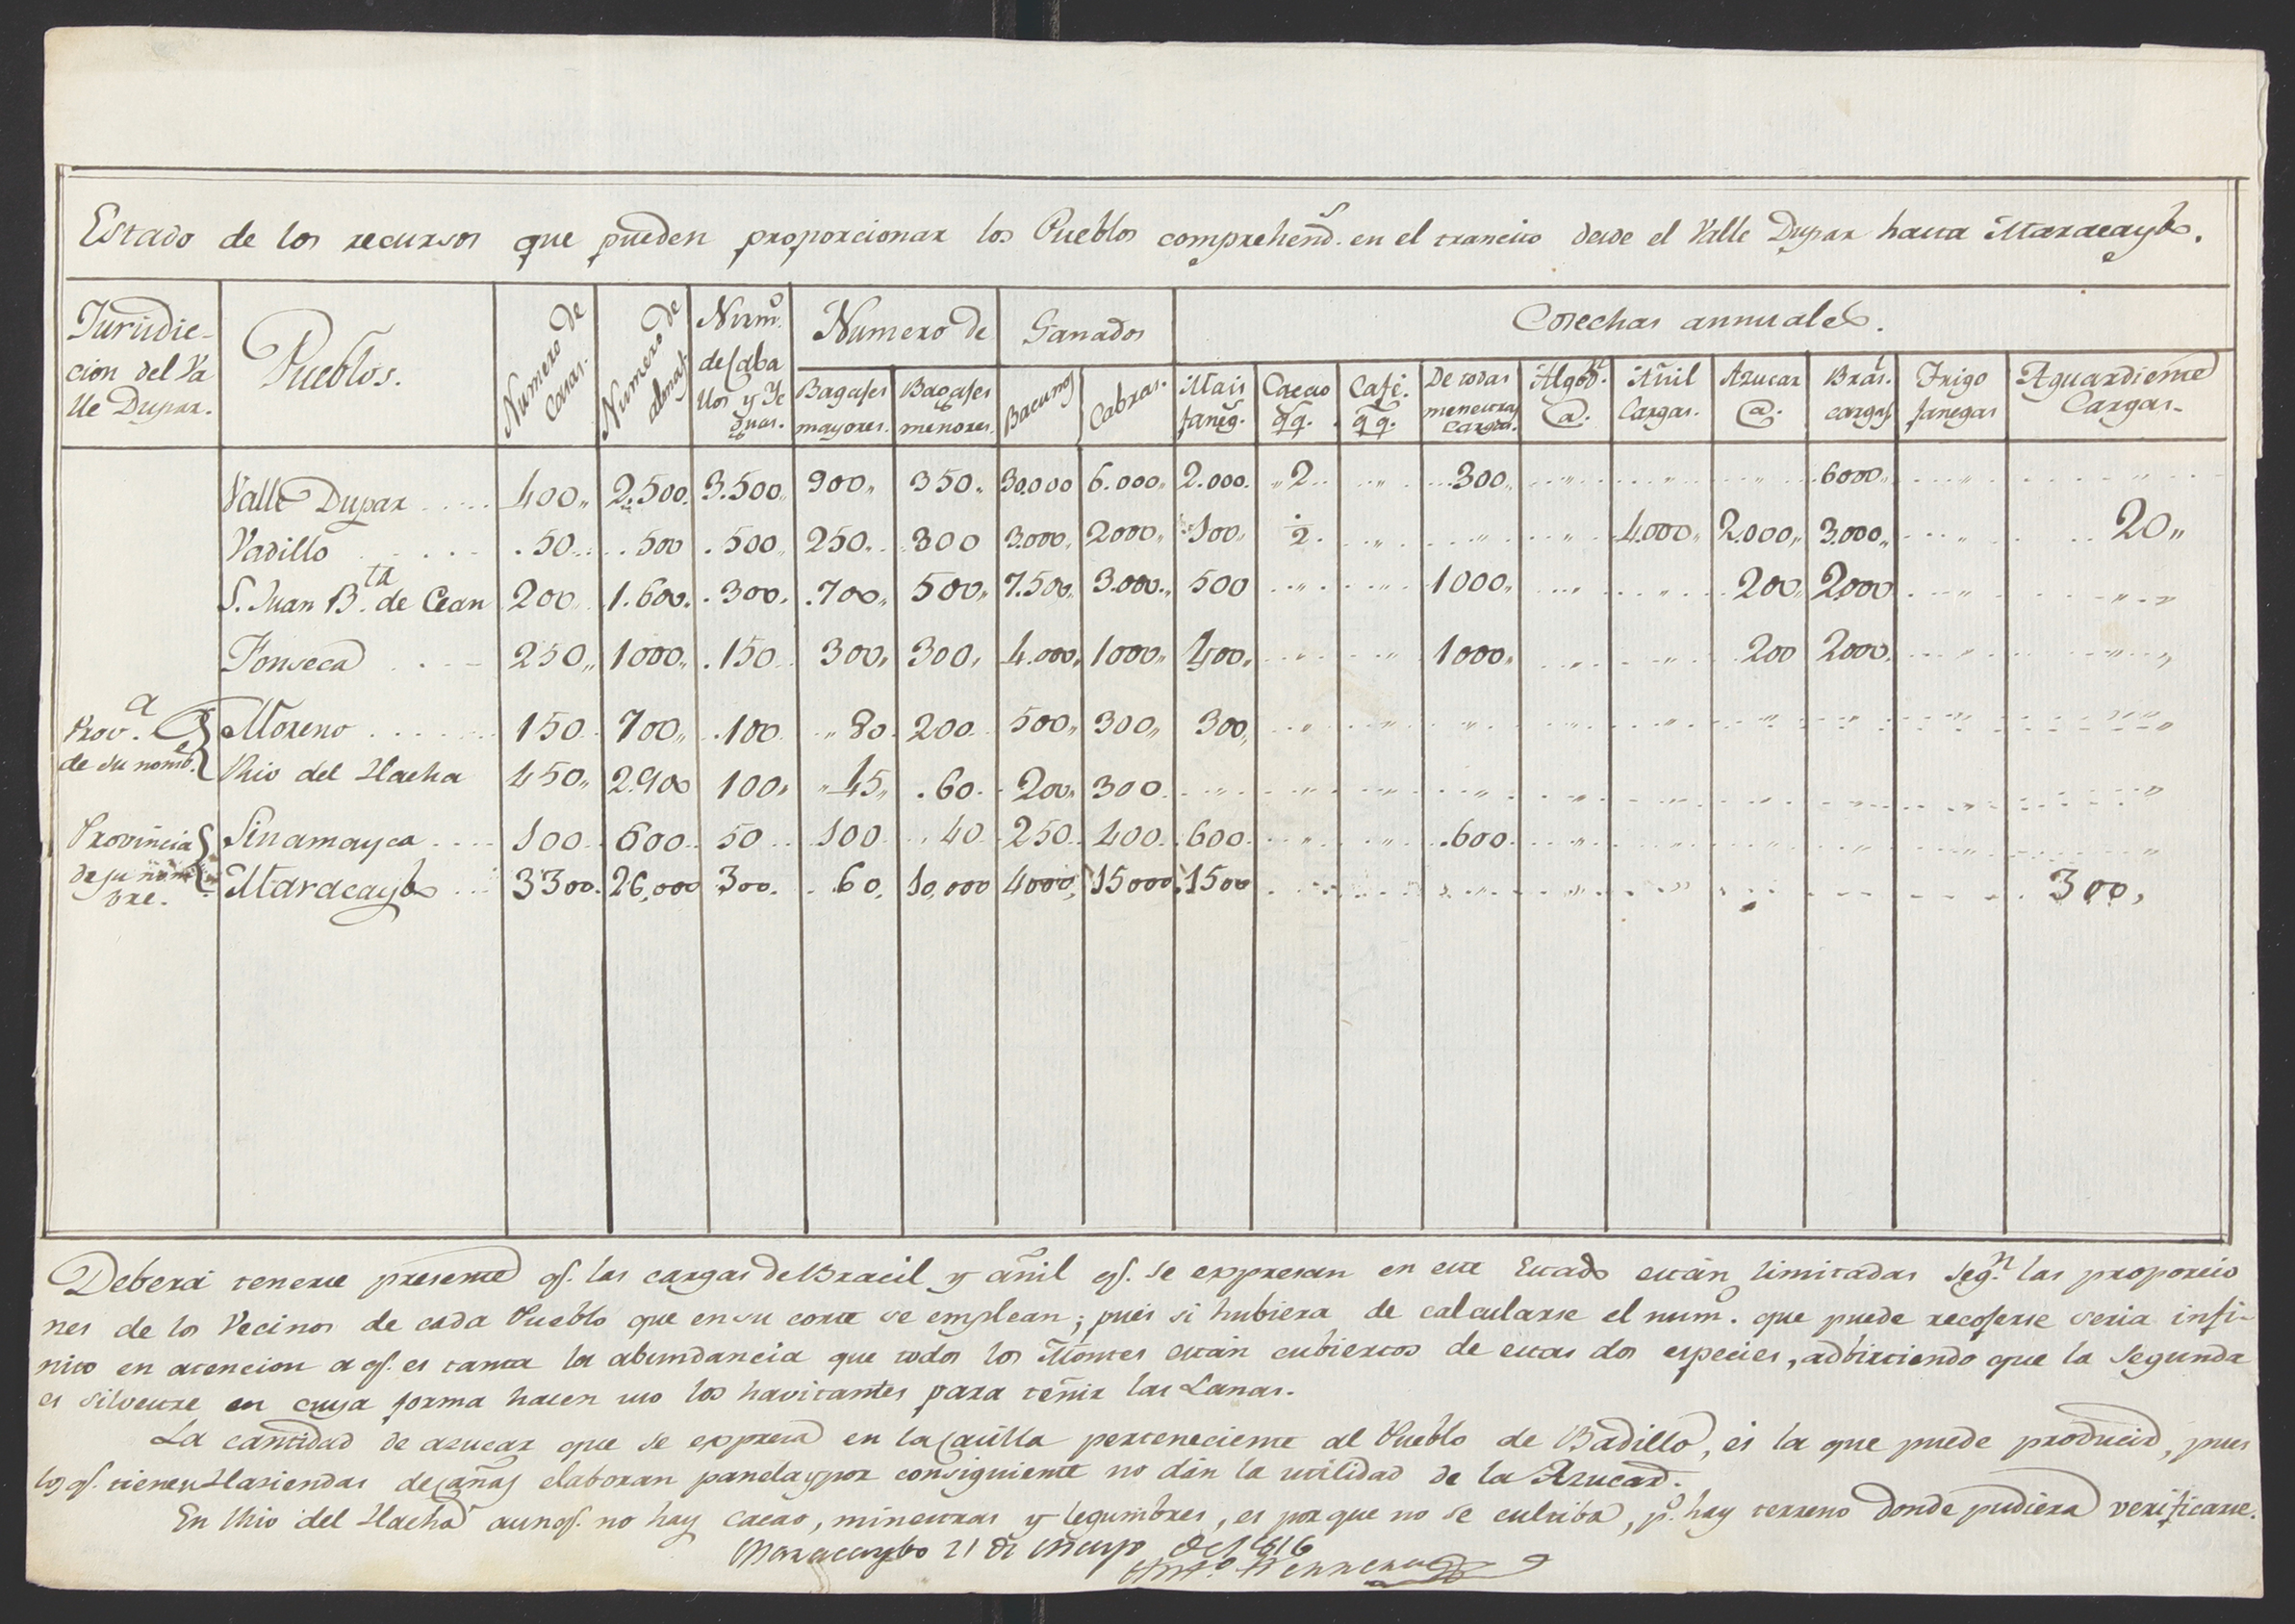 Estado de los recursos que pueden proporcionar los Pueblos comprehend.s en el trancito desde el Valle Dupar hasta Maracaybo.
Jurisdic-
cion del Va
lle Dupar.
Pueblos.
Numero de
casas.
Numero de
almas.
Num.o
de Caba
llos y Ye
guas.
Numero de
Bagajes
mayores.
Bagajes
menores.
Ganados
Bacunos
Cabras.
Cosechas annuales.
Mais
faneg.s
Cacao
qq.
Cafe.
qq.
De todas
menestras
cargas.
Algod.n
@.
Añil
Cargas.
Azucar
@.
Bras.l
cargas
Trigo
fanegas
Aguardiente
Cargas.
Valle Dupar 400 2.500 3.500 900 350 30.000 6.000 2.000 2 " 300 " " " 6000 " "
Vadillo 50 500 500 250 300 3.000 2000 100 ½ " " " 4.000 2.000 3.000 " 20
S. Juan B.ta de Cesar 200 1.600 300 700 500 7.500 3.000 500 " " 1000 " " 200 2000 " "
Fonseca 250 1000 150 300 300 4.000 1000 400 " " 1000 " " 200 2000 " "
Prov.a
de su nomb.e
Moreno 150 700 100 80 200 500 300 300 " " " " " " " " "
Rio del Hacha 450 2.900 100 45 60 200 300 " " " " " " " " " "
Provincia
de su nom
bre.
Sinamayca 100 600 50 100 40 250 400 600 " " 600 " " " " " "
Maracaybo 3300 26,000 300 60 10,000 4000 15000 1500 " " " " " " " " 300
Deberá tenerse presente q.e las cargas de Bracil y añil q.e se expresan en este Estado están limitadas seg.n las proporcio
nes de los Vecinos de cada Pueblo que en su corte se emplean; pues si hubiera de calcularse el num.o que puede recojerse seria infi-
nito en atencion a q.e es tanta la abundancia que todos los Montes están cubiertos de estas dos especies, adbirtiendo que la segunda
es silvestre en cuya forma hacen uso los havitantes para teñir las Lanas.
La cantidad de azucar que se expresa en la Casilla perteneciente al Pueblo de Badillo, es la que puede producir, pues
los q.e tienen Hasiendas de cañas elaboran panela y por consiguiente no dán la utilidad de la Azucar.
En Rio del Hacha aunq.e no hay cacao, minestras y legumbres, es por que no se cultiba, p.o hay terreno donde pudiera verificarse.
Maracaybo 21 de Mayo de 1816
Ant.o Herrera